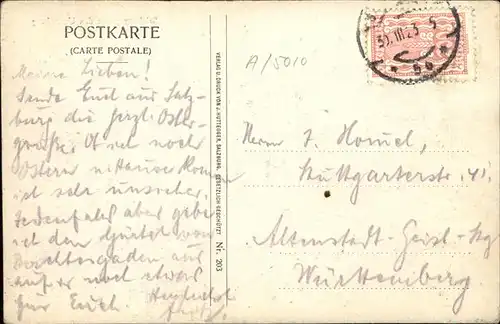 POSTKARTE
(CARTE POSTALE)
Meine Lieben!
Sende Euch aus Salz-
burg die herzl. Oster-
grüße. Ob ich noch
Ostern n. Hause komme
ist sehr unsicher.
Jedenfalls aber gebe
ich den
Berchtesgaden aus
auf er noch etwas
für Euch. Herzlichst
Fritz.
VERLAG U. DRUCK VON J. HUTTEGGER, SALZBURG. GESETZLICH GESCHÜTZT. Nr. 203
A/5010
30.III.23
Herrn J. Homel,
Stuttgarterstr. 41.
Altenstadt-Geisl-Stg
Württemberg